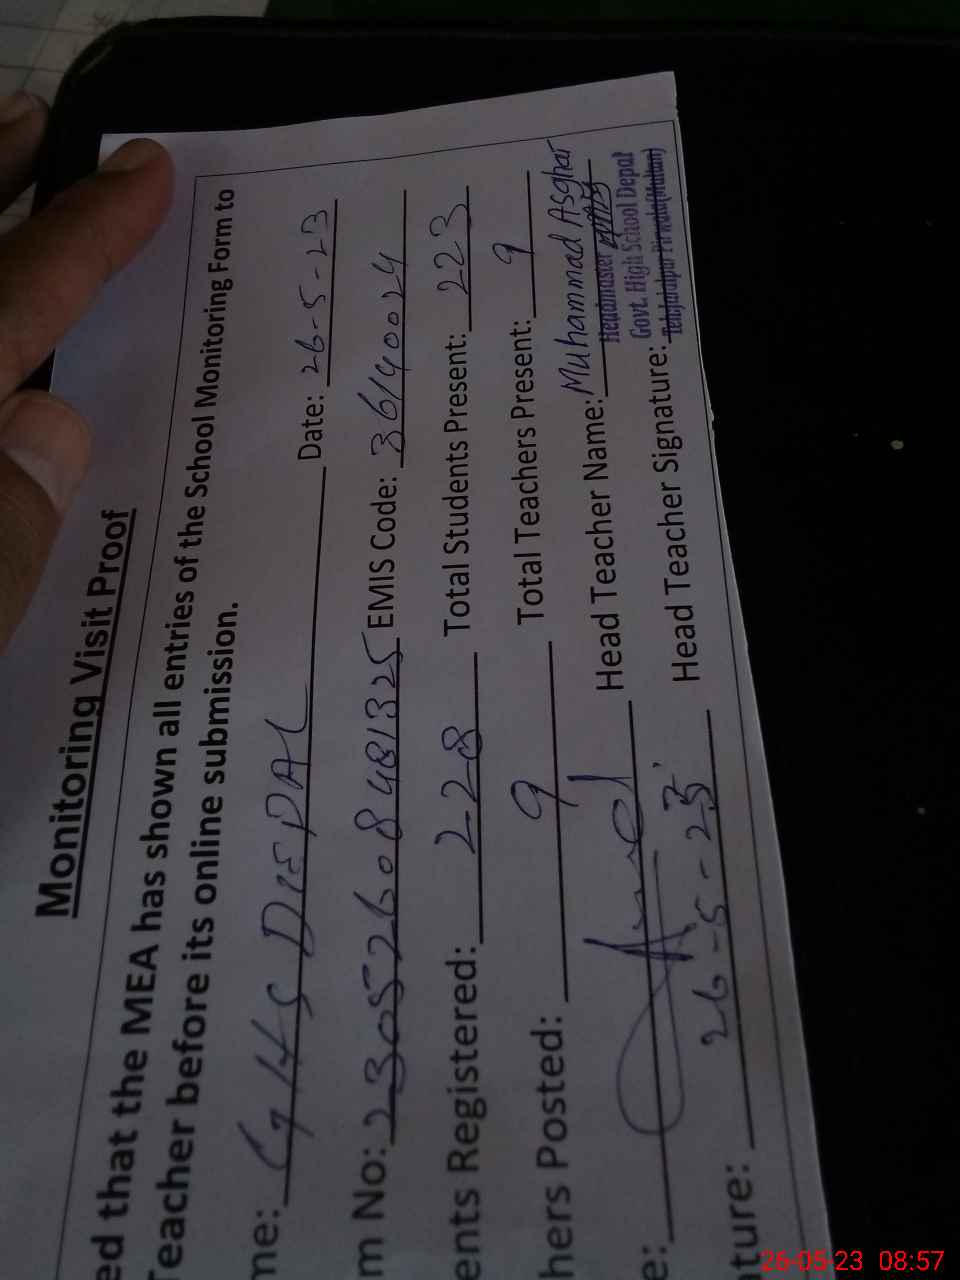 Monitoring Visit Proof
ed that the MEA has shown all entries of the School Monitoring Form to
Teacher before its online submission.
me: GHS DIEPAL Date: 26-5-23
m No: 23052608481325 EMIS Code: 36140024
ents Registered: 228 Total Students Present: 223
hers Posted: 9 Total Teachers Present: 9
e: Head Teacher Name: Muhammad Asghar
Headmaster
Govt. High School Depal
Teh;Jalalpur Pirwala(Multan)
ture: 26-5-23 Head Teacher Signature:
26-05-23 08:57